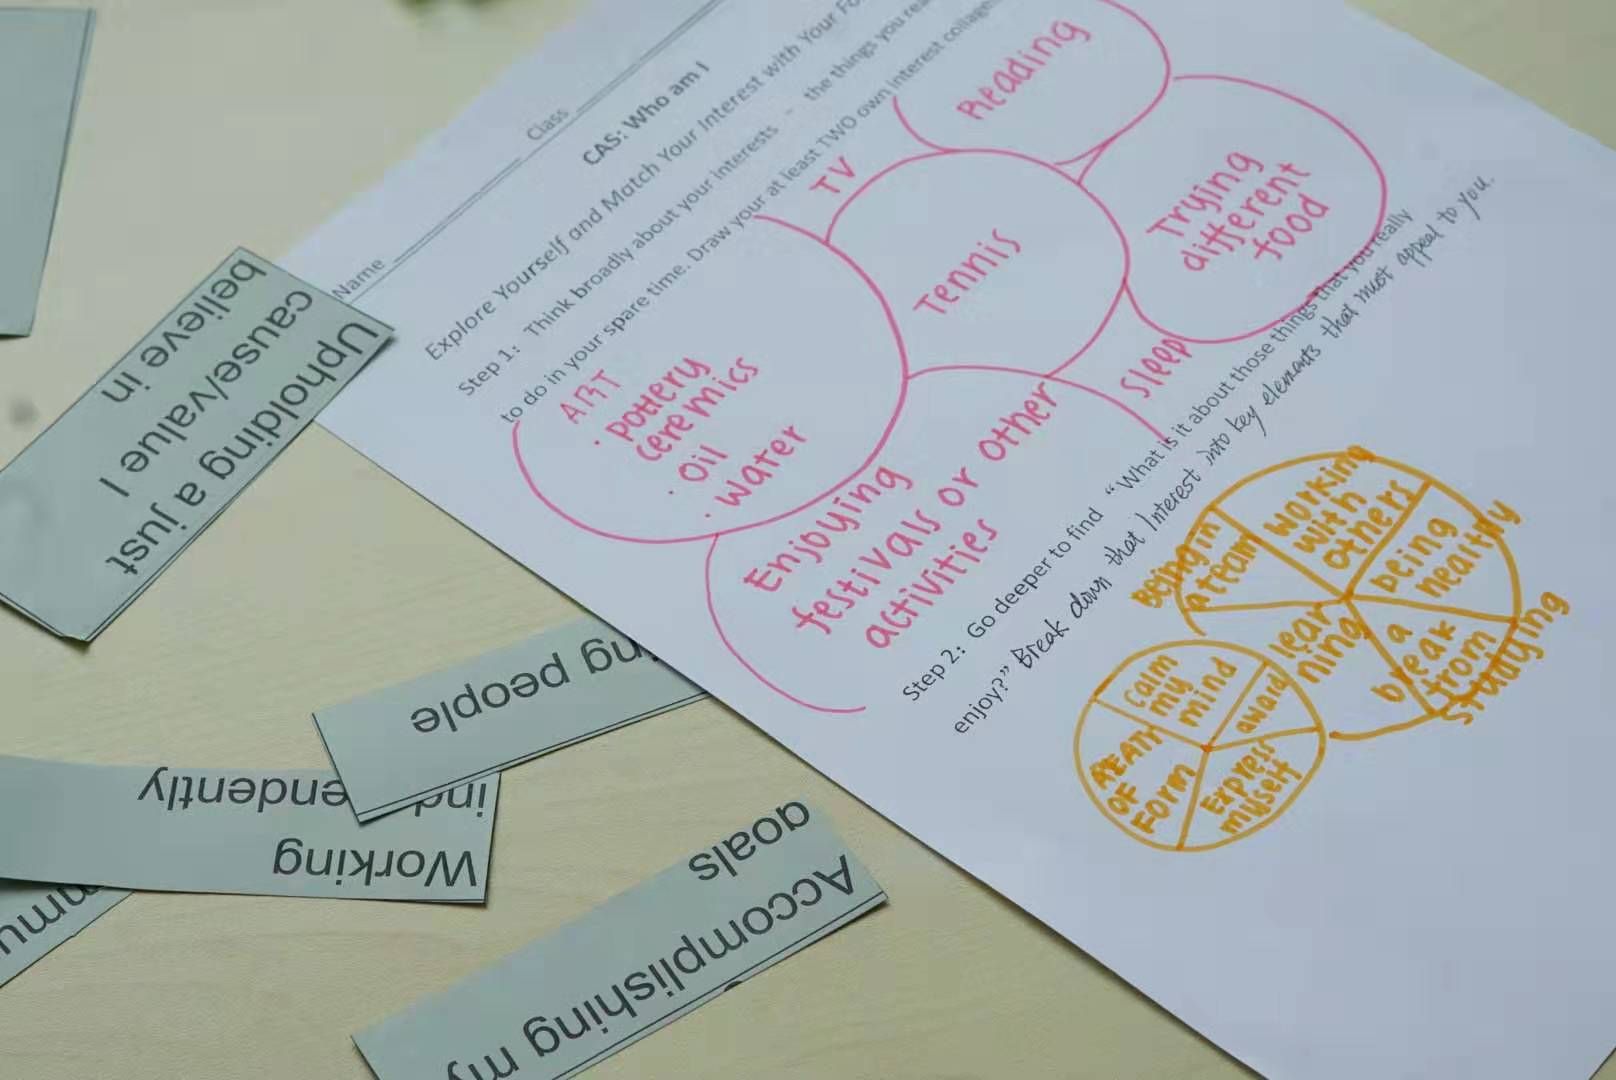 Name Class
CAS: Who am I
Explore Yourself and Match Your Interest with Your
Step 1: Think broadly about your interests - the things you
to do in your spare time. Draw your at least TWO own interest
Reading
TV
Tennis
Trying
different
food
Sleep
ART
· pottery
ceremics
· Oil
· water
Enjoying
festivals or other
activities
Step 2: Go deeper to find “What is it about those things that you really
enjoy?” Break down that Interest into key elements that most appeal to you.
Being in
a team
working
with
others
being
healthy
a
break
from
studying
lear
ning
calm
my
mind
award
Express
myself
OF
FORM
Upholding a just
cause/value I
believe in
people
Working
Accomplishing my
goals